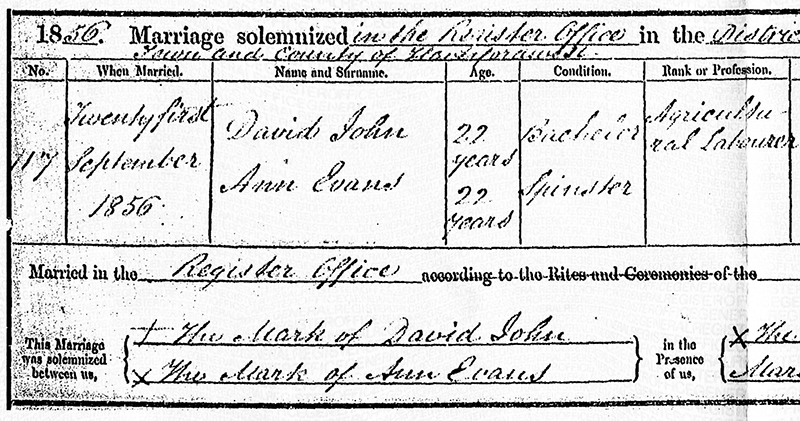 1856. Marriage solemnized in the Register Office in the Distric
Town and County of Haverfordwest
No. When Married. Name and Surname. Age. Condition. Rank or Profession.
117 Twenty first September 1856 David John 22 years Bachelor Agricultu-ral Labourer
Ann Evans 22 years Spinster
Married in the Register Office according to the Rites and Ceremonies of the
This Marriage was solemnized between us,
+ The Mark of David John
x The Mark of Ann Evans
in the Presence of us,
x The
Mar